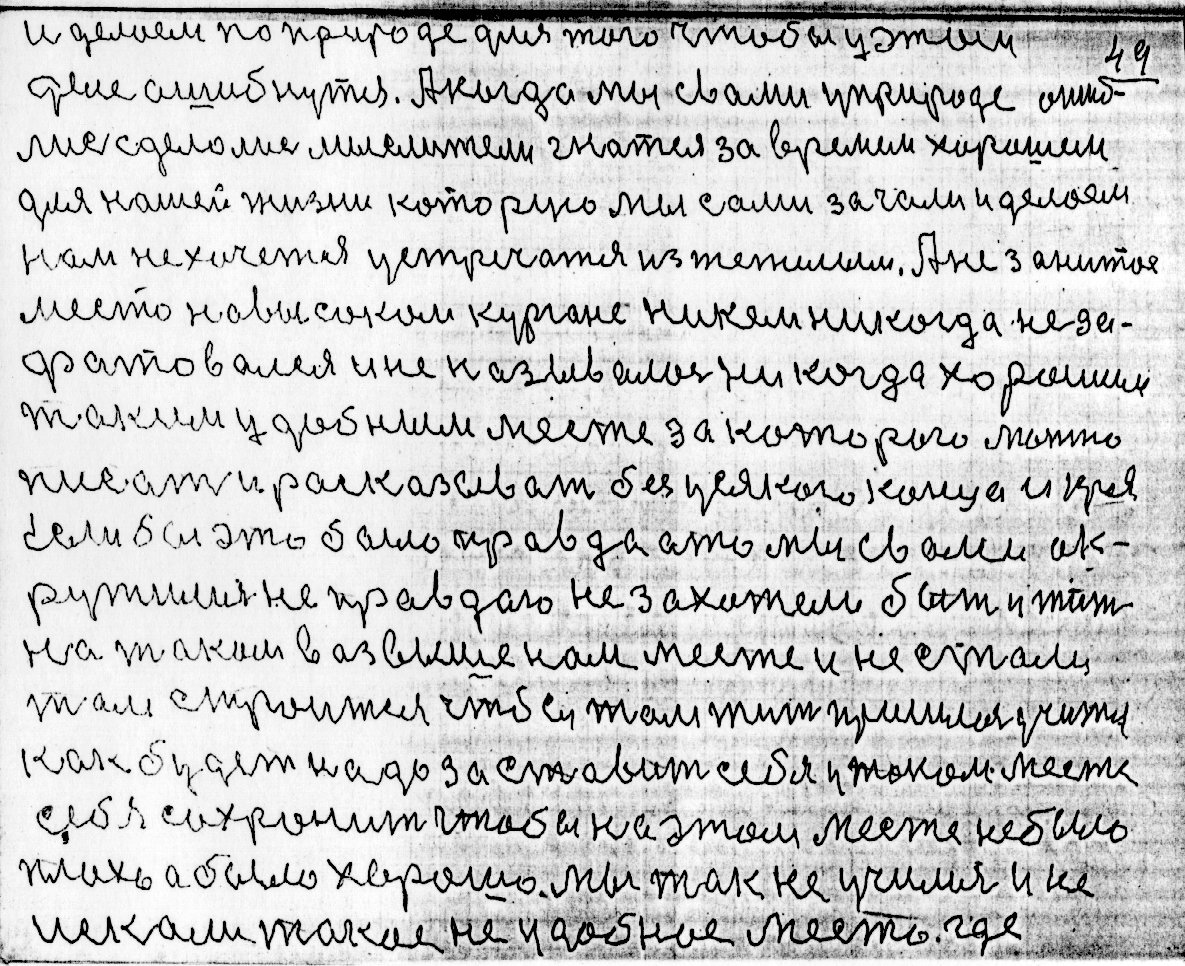 и делаем по природе для того чтобы у этым
49
деле ашибнутся. А когда мы свами у природе ашиб-
лися сделалися мыслители гнатся за времем хорошем
для нашей жизни которую мы сами зачали и делаем
нам не хочется устречатся из тяжелым. А не занитое
место на высоком кургане никем никогда не за-
фатовался и не называлося никогда хорошим
таким удобным месте за которого можно
писат и расказыват без усякого конца и края
Если бы это было правда а то мы свами ак-
ружилися не правдаю не захотели быт и жит
на таком вазвышеном месте и не стали
там строится чтобы там жит пришлося учится
как будет надо заставит себя у таком месте
себя сохронит чтобы на этом месте небыло
плохо а было хорошо. мы так не учился и не
искали такое не удобное место. где